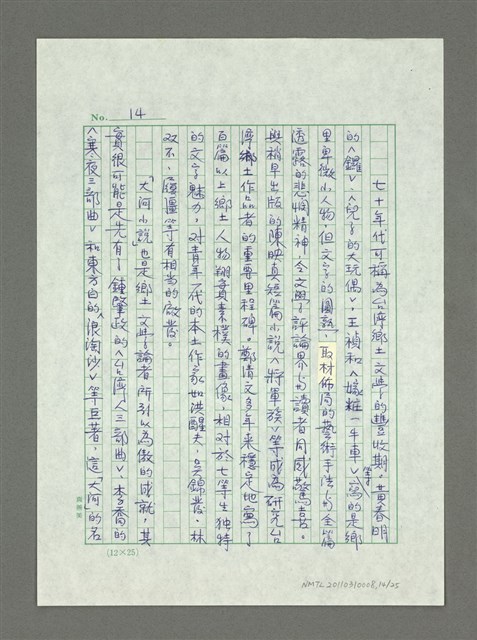 No. 14
七十年代可稱為台灣鄉土文學的豐收期。黃春明
的〈鑼〉、〈兒子的大玩偶〉、王禎和〈嫁粧一牛車〉等寫的是鄉
里卑微小人物，但文字的圓熟，取材佈局的藝術手法與全篇
透露的悲憫精神，令文學評論界與讀者同感驚喜。
與稍早出版的陳映真短篇小說〈將軍族〉等成為研究台
灣鄉土作品者的重要里程碑。鄭清文多年來穩定地寫了
百篇以上鄉土人物翔實素樸的畫像，相對於七等生獨特
的文字魅力，對青年一代的本土作家如洪醒夫，吳錦發，林
双不，履彊等有相當的啟發。
「大河小說」也是鄉土文學論者所引以為傲的成就，其
實很可能是先有了鍾肇政的〈台灣人三部曲〉、李喬的
〈寒夜三部曲〉和東方白的〈浪淘沙〉等巨著，這「大河」的名
(12×25)
NMTL 20110310008, 14/25